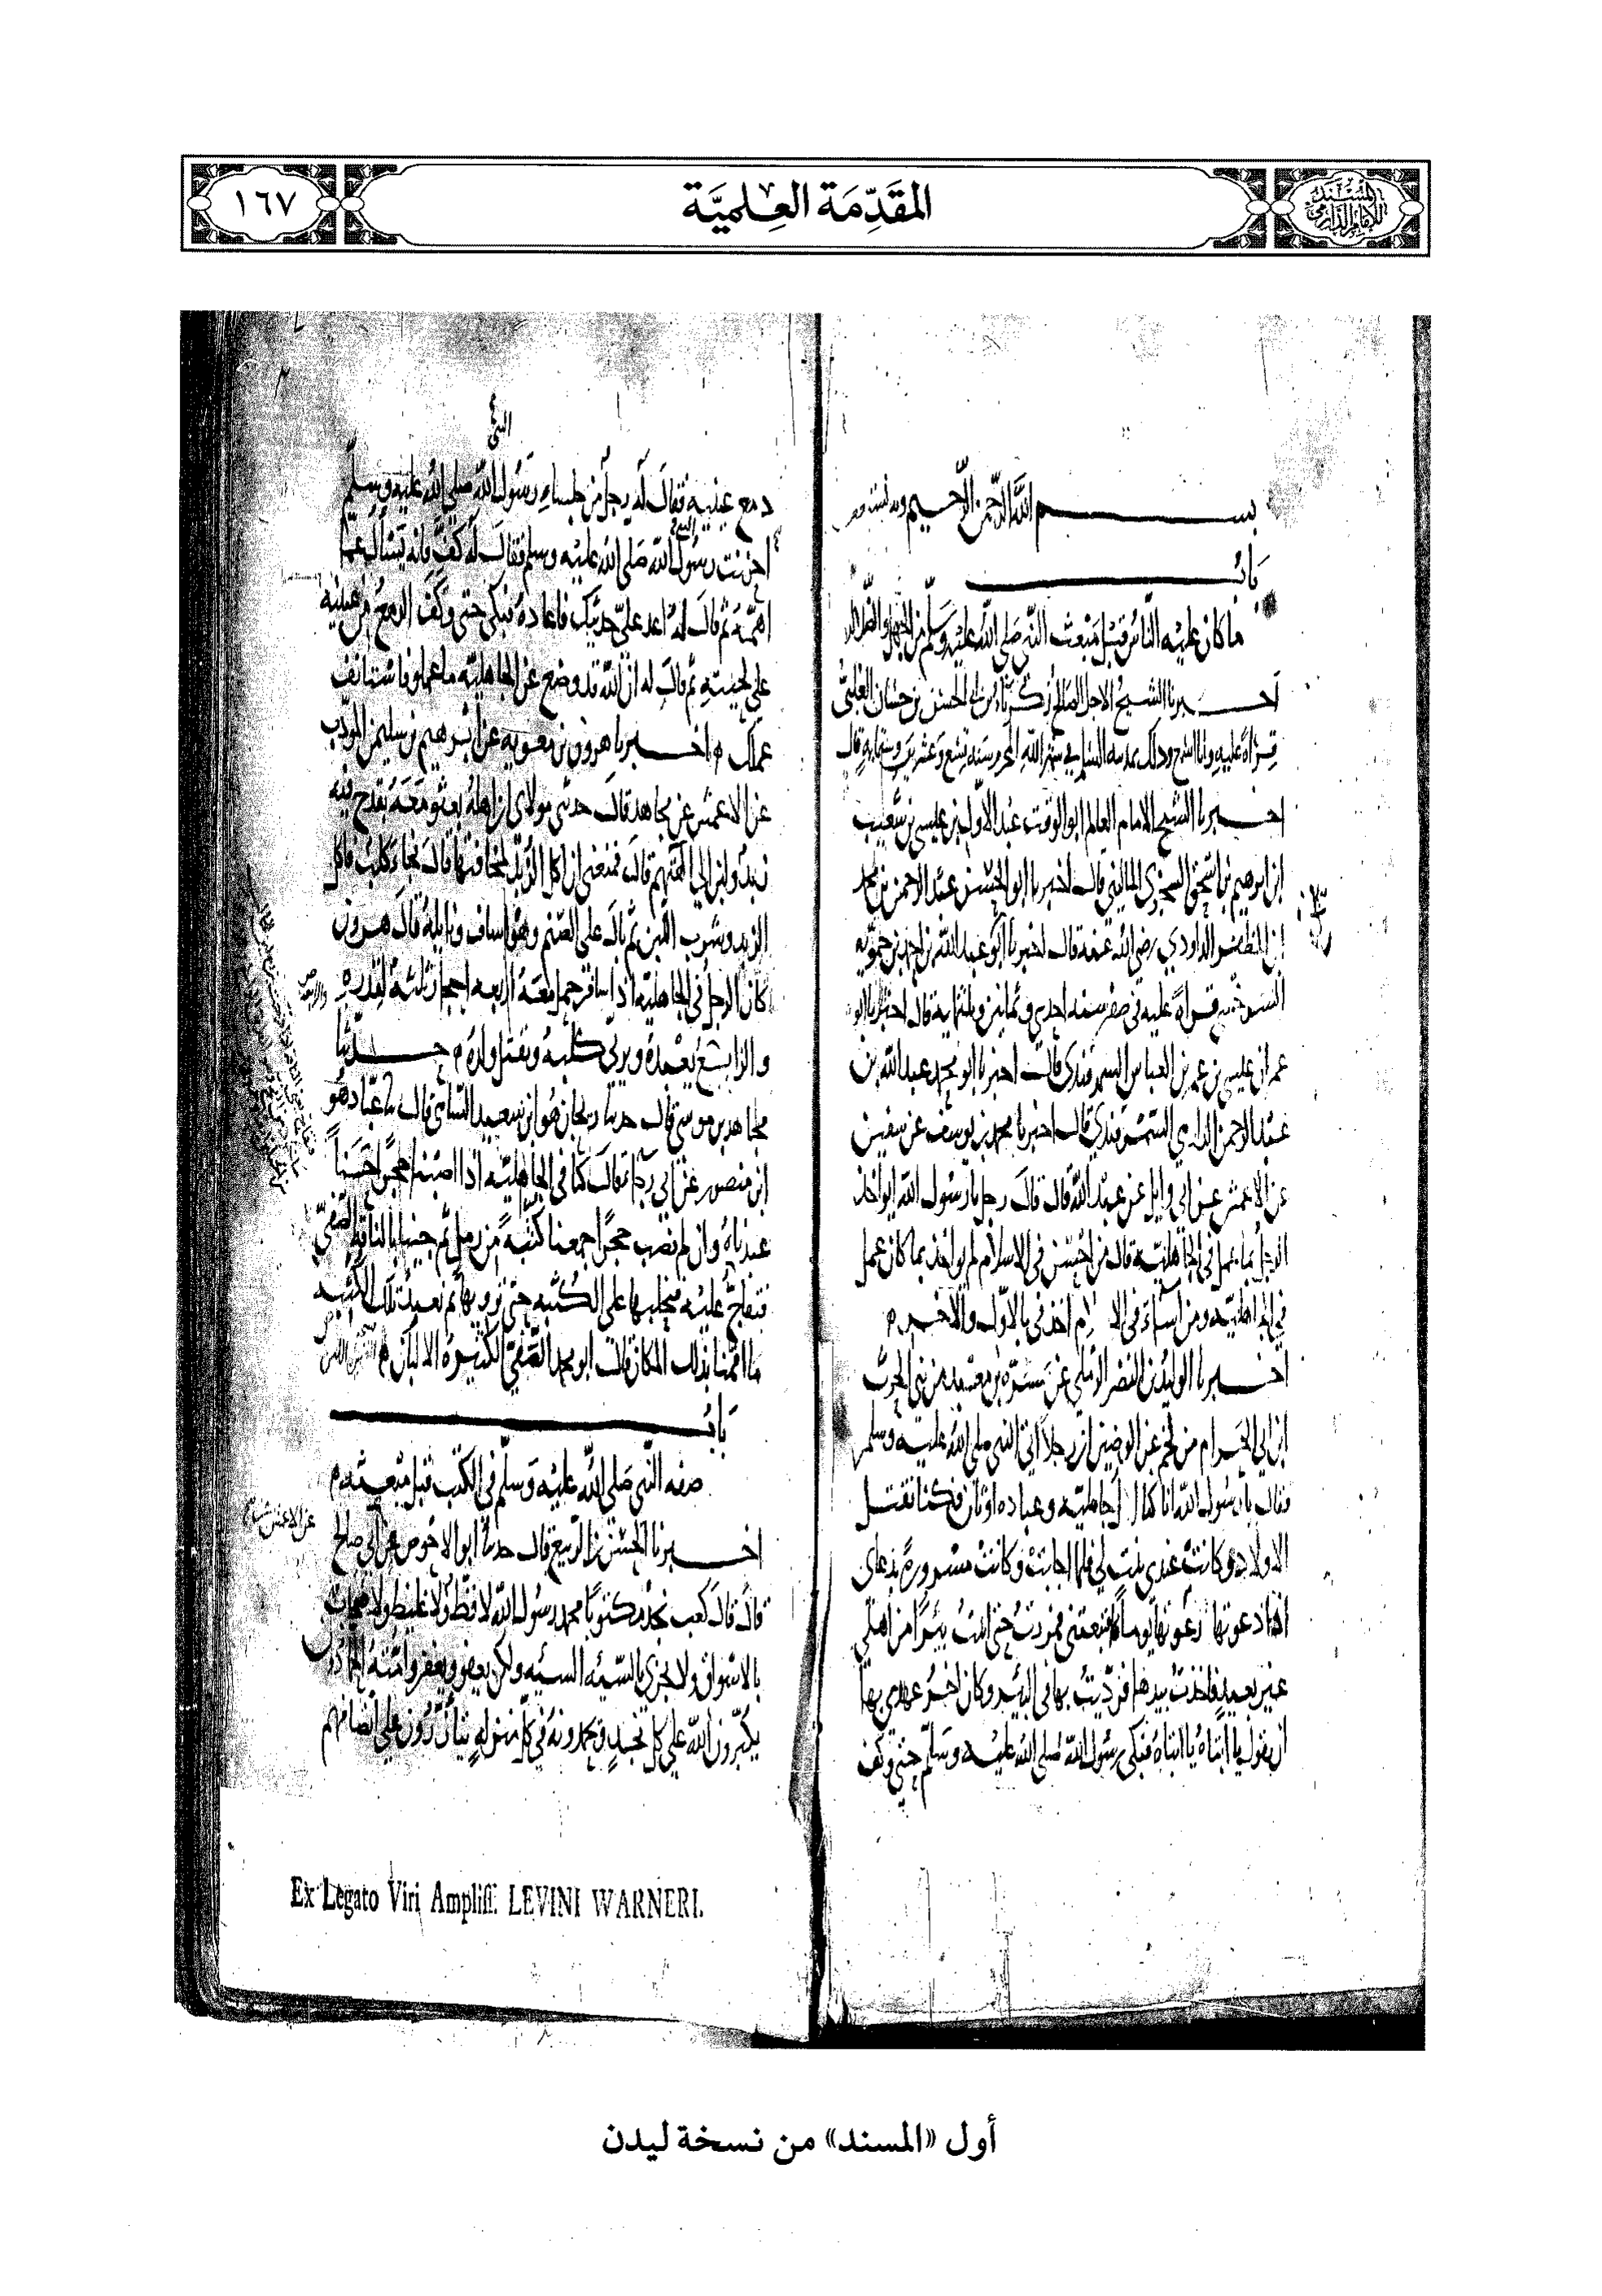 المسند للإمام الدارمي
المقَدِّمَة العِلميَّة
١٦٧
بسم الله الرحمن الرحيم وبه نستعين
بَابُ
ما كان عليه الناس قبل مبعث النبي صلى الله عليه وسلم من الجهل والضلالة
اخبرنا الشيخ الاجل الصالح زكرياء بن علي الحسن بن حسان العلبي
قراة عليه وانا اسمع وذلك بمدينة السلم في شهر الله المحرم سنة تسع وعشرين وستماية قال
اخبرنا الشيخ الامام العالم ابو الوقت عبد الاول بن عيسى بن شعيب
ابن ابرهيم بن اسحق السجزي الماليني قال اخبرنا ابو الحسن عبد الرحمن بن محمد
ابن المظفر الداودي رضي الله عنه قال اخبرنا ابو عبد الله بن احمد بن حمويه
السرخسي قراة عليه في صفر سنه احدى وثمانين وثلثماية قال اخبرنا ابو
عمران عيسى بن عمر بن العباس السمرقندي قال اخبرنا ابو محمد عبد الله بن
عبد الرحمن الدارمي السمرقندي قال اخبرنا محمد بن يوسف عن سفين
عن الاعمش عن ابي وايل عن عبد الله قال قال رجل يا رسول الله ايواخذ
الرجل بما عمل في الجاهلية قال من احسن في الاسلام لم يواخذ بما كان عمل
في الجاهلية ومن اساء في الاسلام اخذ في بالاول والاخر
اخبرنا الوليد بن النضر الرملي عن مسرة بن معبد من بني الحرث
ابن ابي الحرام من لخم عن الوضين ان رجلا اتى النبي صلى الله عليه وسلم
فقال يا رسول الله انا كنا اهل جاهلية وعبادة اوثان فكنا نقتل
الاولاد وكانت عندي بنت لي فلما اجابت وكانت مسرورة بدعاي
اذا دعوتها دعوتها يوما فاتبعتني فمررت حتى اتيت بيرا من اهلي
غير بعيد فاخذت بيدها فرديت بها في البير وكان اخر عهدي بها
ان تقول يا ابتاه يا ابتاه فبكى رسول الله صلى الله عليه وسلم حتى وكف
النبي
دمع عينيه فقال له رجل من جلساء رسول الله صلى الله عليه وسلم
احزنت رسول الله صلى الله عليه وسلم فقال له كف فانه يسأل عما
اهمه ثم قال له اعد علي حديثك فاعاده فبكى حتى وكف الدمع من عينيه
على لحيته ثم قال له ان الله قد وضع عن الجاهلية ما عملوا فاستانف
عملك اخبرنا هرون بن معوية عن ابرهيم بن سليمن المودب
عن الاعمش عن مجاهد قال حدثني مولاي ان اهله بعثوا معه بقدح فيه
زبد ولبن الى الهتهم قال فمنعني ان اكل الزبد لمخافتها قال فجاء كلب فاكل
الزبد وشرب اللبن ثم بال على الصنم وهو اساف ونايلة قال هرون
كان الرجل في الجاهلية اذا سافر حمل معه اربعة احجار ثلثة لقدره
والرابع يعبده ويربي كلبه ويقتل ولده حدثنا
مجاهد بن موسى قال حدثنا ريحان هو ابن سعيد السامي قال ثنا عباد هو
ابن منصور عن ابي رجاء قال كنا في الجاهلية اذا اصبنا حجرا حسنا
عبدناه وان لم نصب حجرا جمعنا كثبة من رمل ثم جينا بالناقة الصفي
فتفاج عليه فنحلبها على الكثبة حتى نرويها ثم نعبد تلك الكثبة
ما اقمنا بذلك المكان قال ابو محمد الصفي الكثيرة الالبان
بَابُ
صفة النبي صلى الله عليه وسلم في الكتب قبل مبعثه
اخبرنا الحسن بن الربيع قال حدثنا ابو الاحوص عن ابي صالح
عن الاعمش
قال قال كعب نجده مكتوبا محمد رسول الله لا فظ ولا غليظ ولا صخاب
بالاسواق ولا يجزي بالسيئة السيئة ولكن يعفو ويغفر وامته الحمادون
يكبرون الله على كل نجد ويحمدونه في كل منزلة يتأزرون على انصافهم
Ex Legato Viri Ampliſſ. LEVINI WARNERI.
أول «المسند» من نسخة ليدن